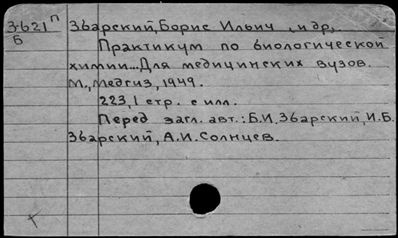 3-621 П Збарский, Борис Ильич, и др,.
Б
Практикум по биологической
химии... Для медицинских вузов.
М., Медгиз, 1949.
223, 1 стр. с илл.
Перед загл. авт.: Б.И. Збарский, И.Б.
Збарский, А.И. Солнцев.